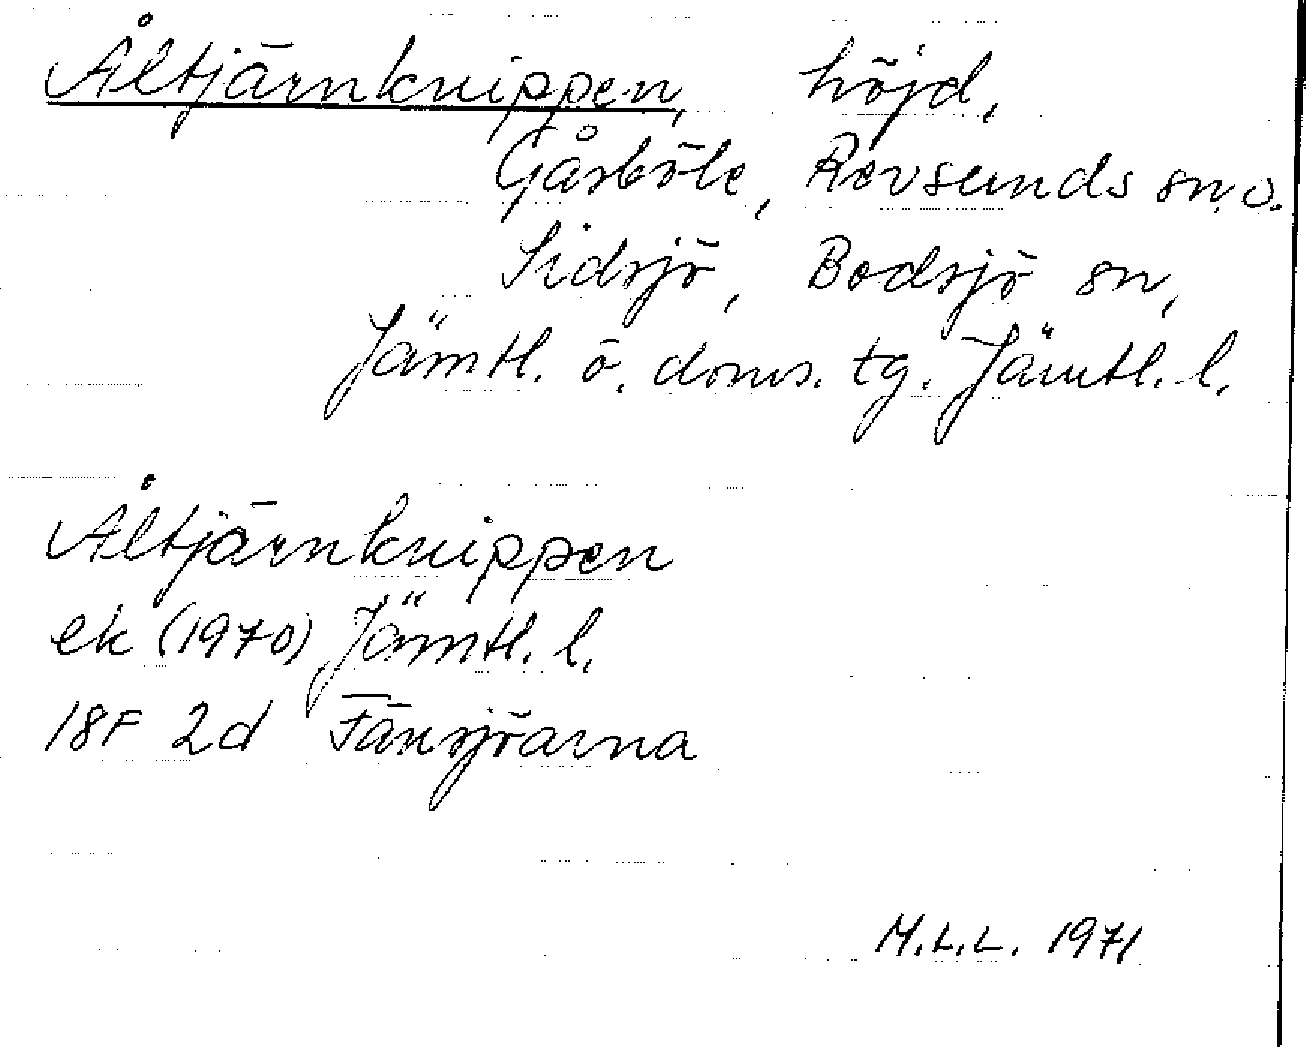 Åltjärnknippen, höjd,
Gåsböle, Revsunds sn. o.
Sidsjö, Bodsjö sn,
Jämtl. ö. doms. tg. Jämtl. l.
Åltjärnknippen
ek (1970) Jämtl. l.
18F 2d Fånsjöarna
M.L.L. 1971